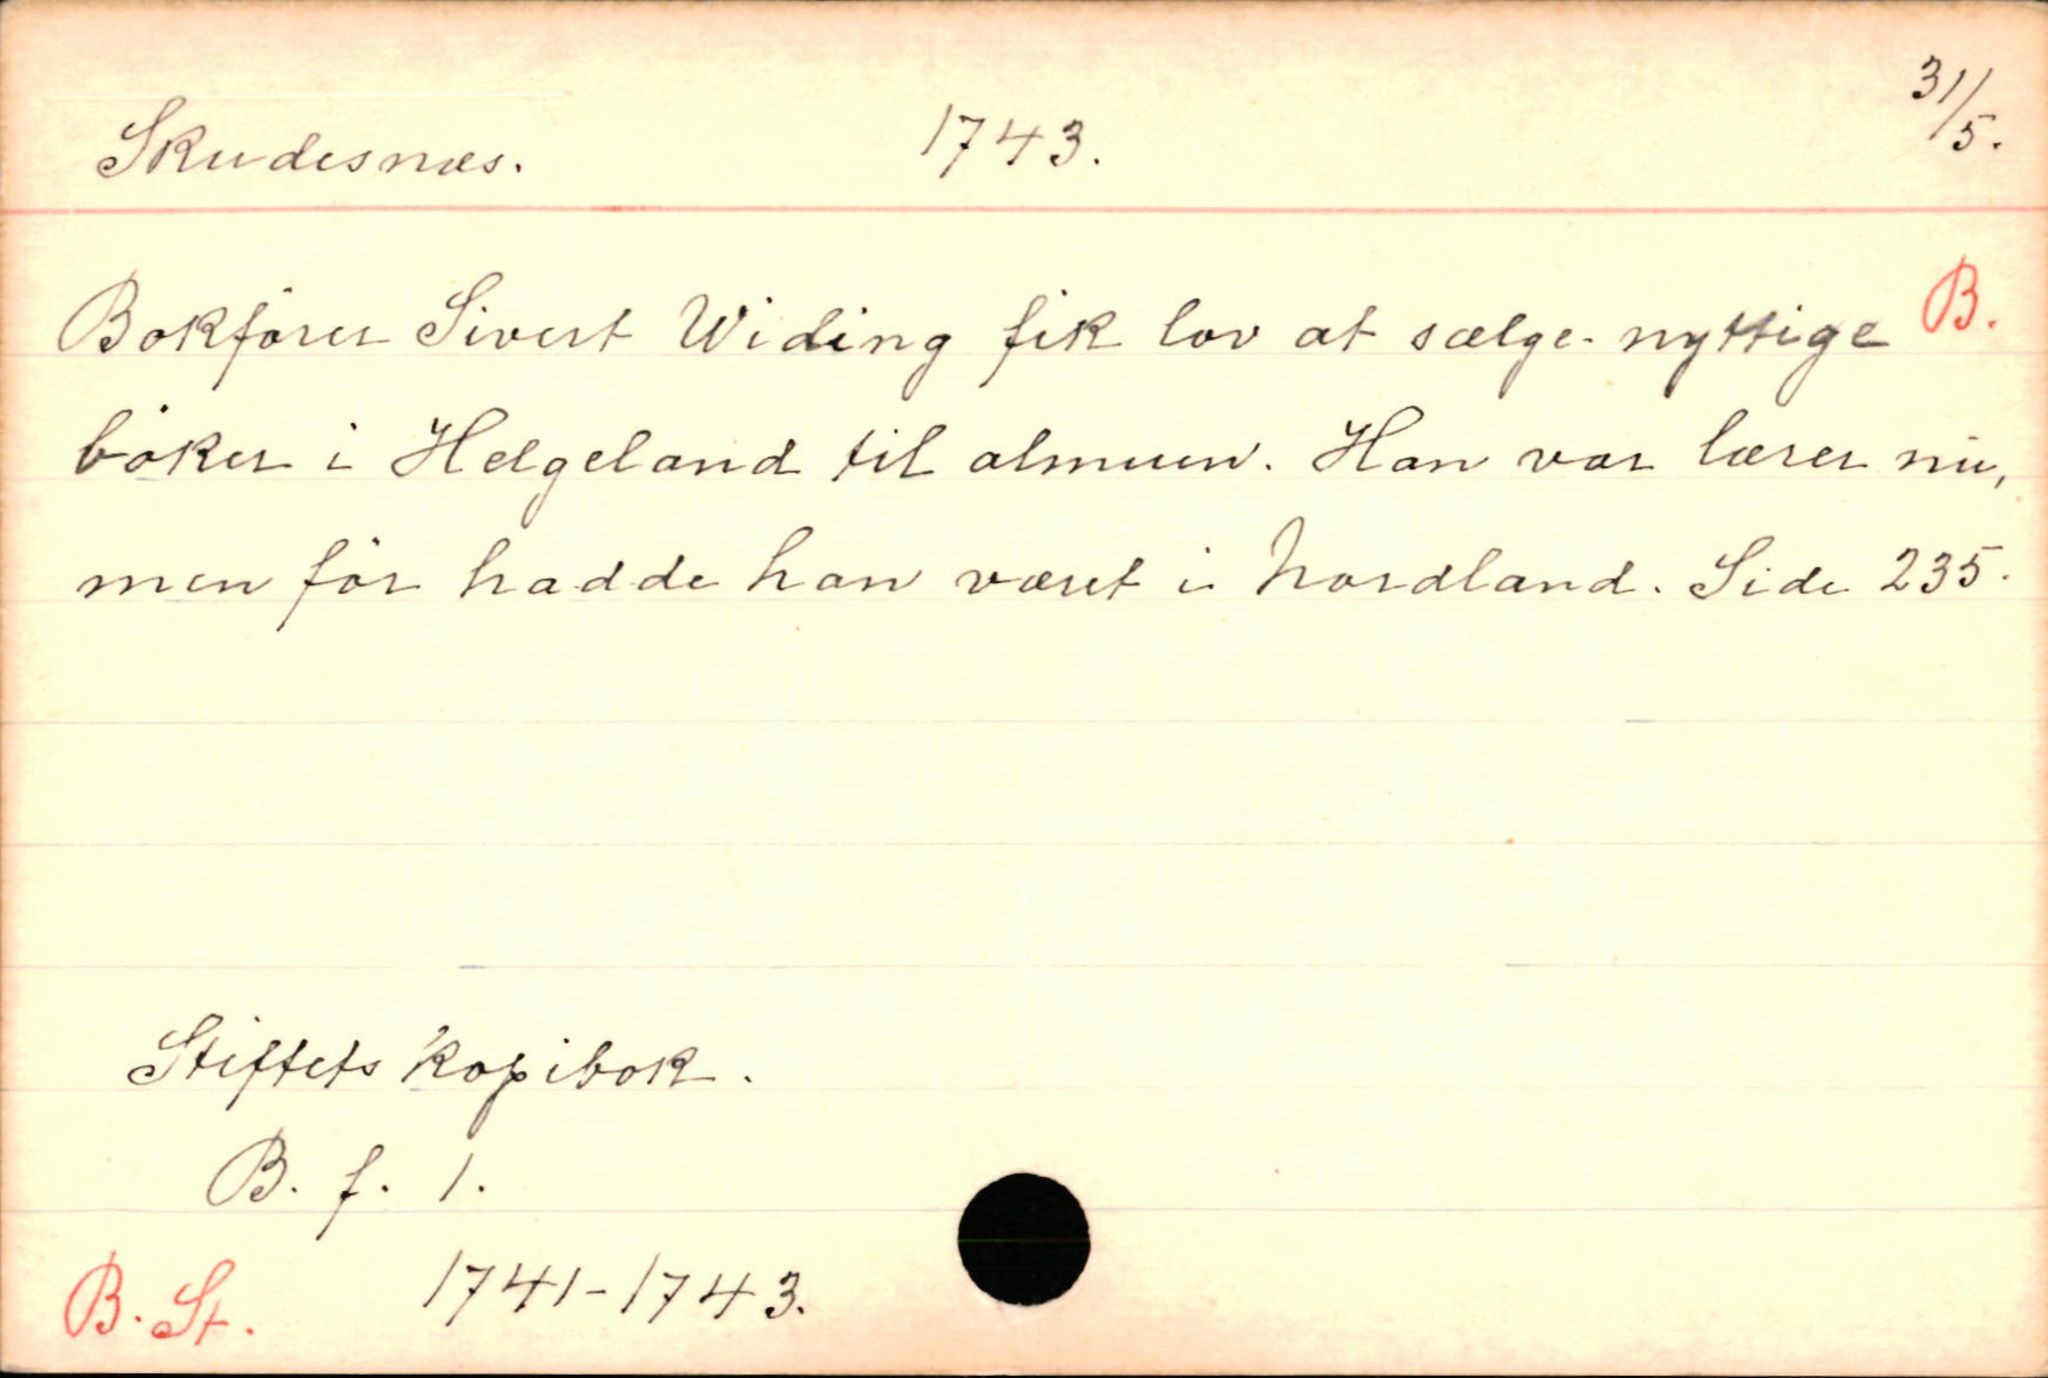 Skudesnæs. 1743. 31/5.
Bokförer Sivert Widing fik lov at sælge nyttige B.
böker i Helgeland til almuen. Han var lærer nu,
men för hadde han været i Nordland. Side 235.
Stiftets kopibok.
B. f. 1.
B. St. 1741-1743.